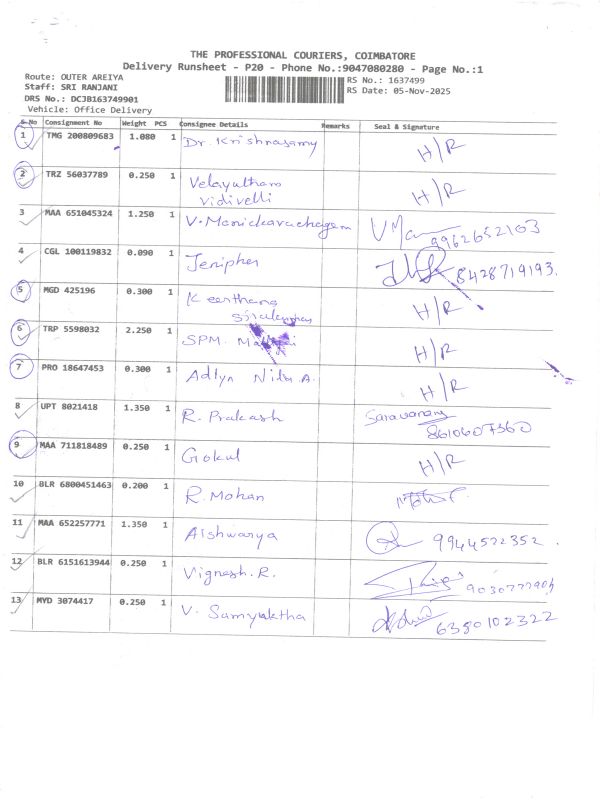 THE PROFESSIONAL COURIERS, COIMBATORE
Delivery Runsheet - P20 - Phone No.:9047080280 - Page No.:1
Route: OUTER AREIYA
RS No.: 1637499
Staff: SRI RANJANI
RS Date: 05-Nov-2025
DRS No.: DCJB163749901
Vehicle: Office Delivery
S.No Consignment No Weight PCS Consignee Details Remarks Seal & Signature
1 TMG 200809683 1.080 1 Dr. Krishnasamy H/R
2 TRZ 56037789 0.250 1 Velayutham H/R
vidivelli
3 MAA 651045324 1.250 1 V. Manickavachagam 9962652103
4 CGL 100119832 0.090 1 Jenipher 8428719193.
5 MGD 425196 0.300 1 Keerthana H/R
6 TRP 5598032 2.250 1 SPM. H/R
7 PRO 18647453 0.300 1 Adlyn Nila A. H/R
8 UPT 8021418 1.350 1 R. Prakash Saravanan
8610607360
9 MAA 711818489 0.250 1 Gokul H/R
10 BLR 6800451463 0.200 1 R. Mohan
11 MAA 652257771 1.350 1 Aishwarya 9944522352.
12 BLR 6151613944 0.250 1 Vignesh. R.
13 MYD 3074417 0.250 1 V. Samyuktha 6350102322